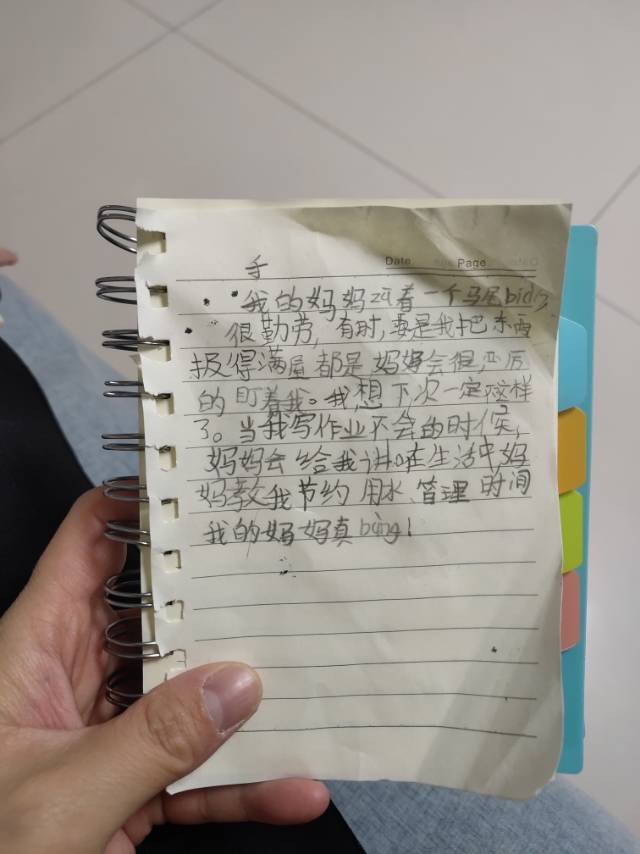 Date Page
手
我的妈妈 看一个马尾biàn,
很勤劳,有时,要是我把东西
扱得满屋都是妈妈会很严厉
的盯着我。我想下次一定 这样
了。当我写作业不会的时候,
妈妈会给我讲。在生活中妈
妈教我节约用水、管理时间
我的妈妈真bàng!